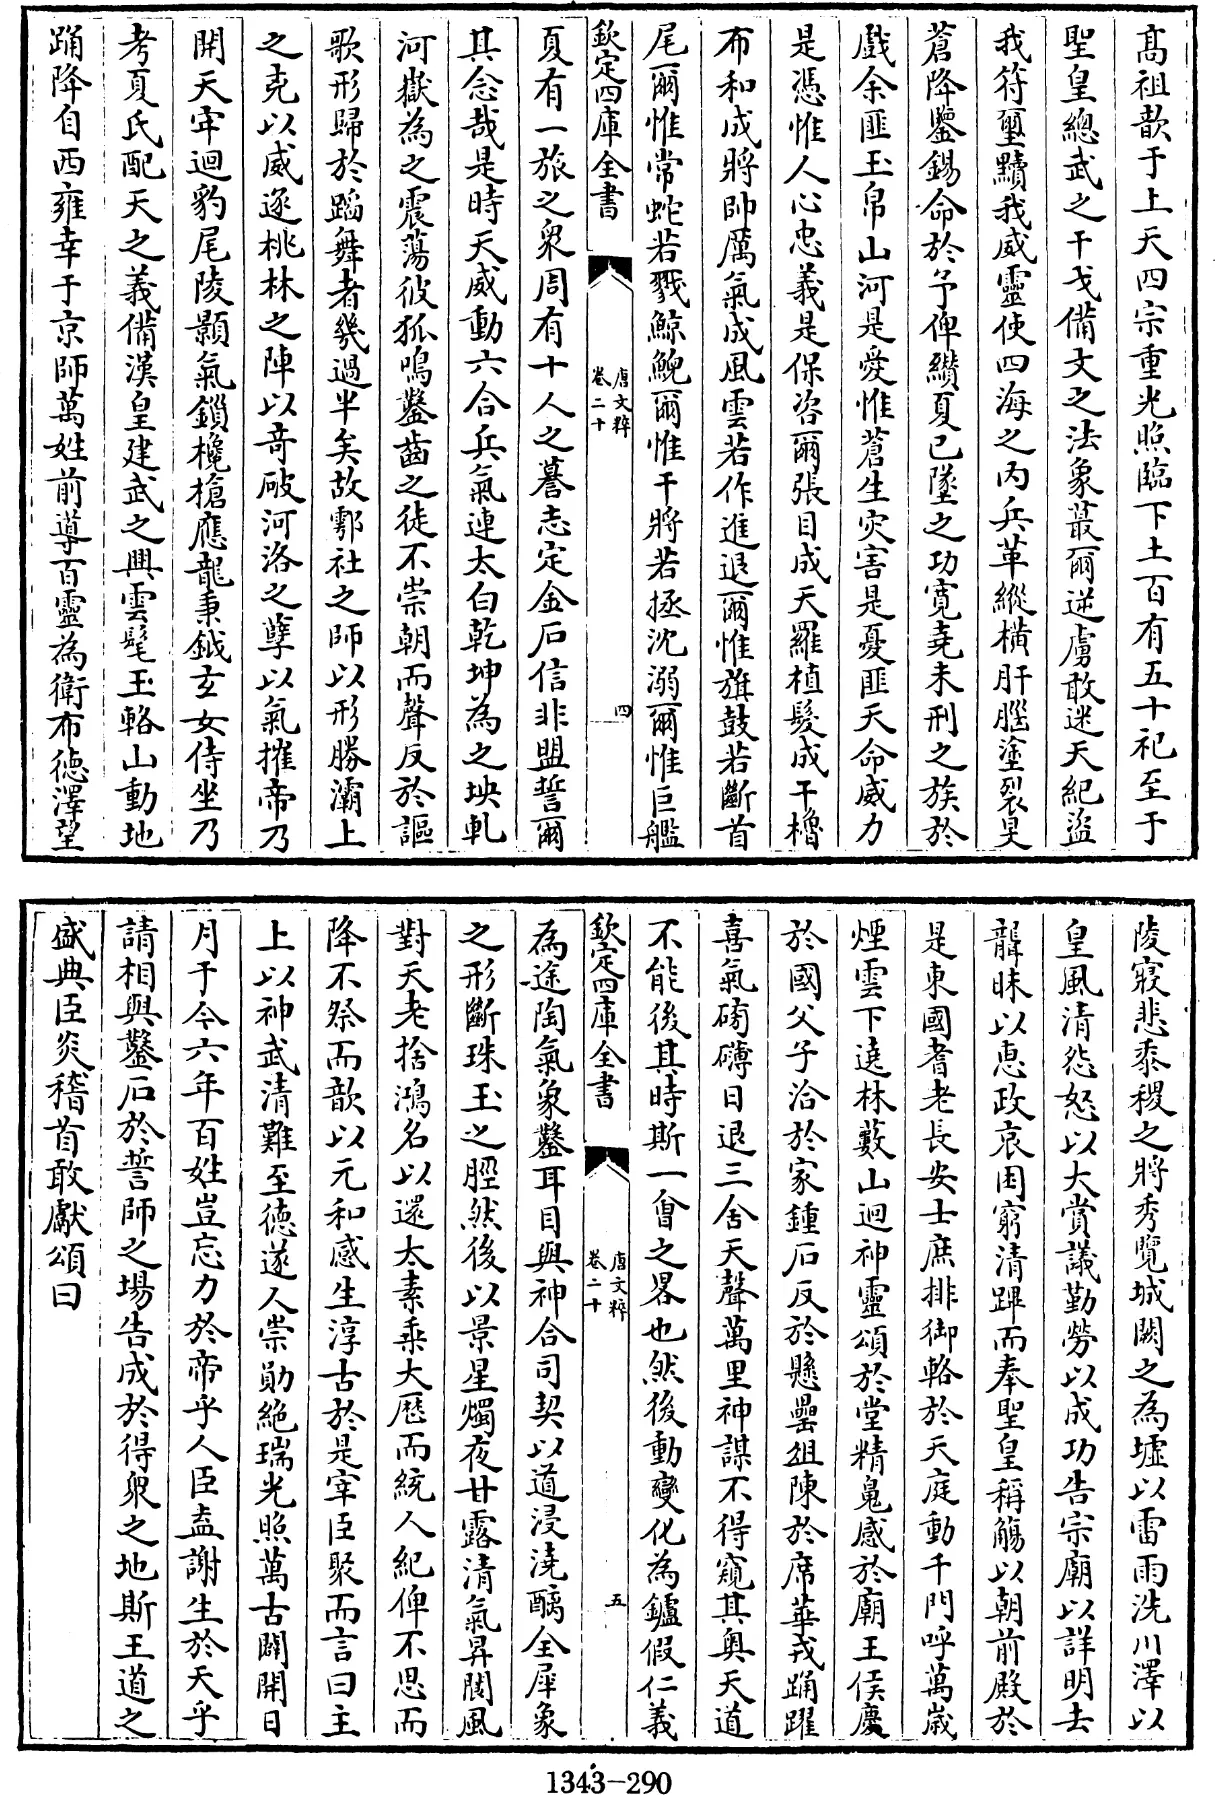 高祖歆于上天四宗重光照臨下土百有五十祀至于
聖皇總武之干戈備文之法象蕞爾逆虜敢迷天紀盜
我符璽黷我威靈使四海之内兵革縱横肝腦塗裂旻
蒼降鑒錫命於予俾纘夏已墜之功寛堯未刑之族於
戲余匪玉帛山河是愛惟蒼生灾害是憂匪天命威力
是憑惟人心忠義是保咨爾張目成天羅植髮成干櫓
布和成將帥厲氣成風雲若作進退爾惟旗鼓若斷首
尾爾惟常蛇若戮鯨鯢爾惟干將若拯沈溺爾惟巨艦
欽定四庫全書
唐文粹
卷二十
四
夏有一旅之衆周有十人之藎志定金石信非盟誓爾
其念哉是時天威動六合兵氣連太白乾坤為之坱軋
河嶽為之震蕩彼狐鳴鑿齒之徒不崇朝而聲反於謳
歌形歸於蹈舞者幾過半矣故鄠社之師以形勝灞上
之克以威逐桃林之陣以竒破河洛之孽以氣摧帝乃
開天牢迴豹尾陵顥氣鎖欃槍應龍秉鉞玄女侍坐乃
考夏氏配天之義備漢皇建武之興雲髦玉輅山動地
踊降自西雍幸于京師萬姓前導百靈為衛布徳澤望
陵寢悲黍稷之將秀覽城闕之為墟以雷雨洗川澤以
皇風清怨怒以大賞議勤勞以成功告宗廟以詳明去
聾昧以惠政哀困窮清蹕而奉聖皇稱觴以朝前殿於
是東國耆老長安士庶排御輅於天庭動千門呼萬嵗
煙雲下遶林藪山迴神靈頌於堂精鬼感於廟王侯慶
於國父子洽於家鍾石反於懸罍俎陳於席華戎踊躍
喜氣磅礴日退三舍天聲萬里神謀不得窺其奥天道
不能後其時斯一㑹之畧也然後動變化為鑪假仁義
欽定四庫全書
唐文粹
卷二十
五
為途陶氣象鑿耳目與神合司契以道浸澆醨全犀象
之形斷珠玉之脛然後以景星燭夜甘露清氣昇閶風
對天老捨鴻名以還太素乘大厯而統人紀俾不思而
降不祭而歆以元和感生淳古於是宰臣聚而言曰主
上以神武清難至徳遂人崇勛絶瑞光照萬古闢開日
月于今六年百姓豈忘力於帝乎人臣盍謝生於天乎
請相與鑿石於誓師之場告成於得衆之地斯王道之
盛典臣炎稽首敢獻頌曰
1343-290